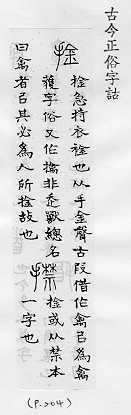 古今正俗字詁
捡
捡急持衣捡也从手金聲古叚借作禽㠯為禽
獲字俗又作擒非走獸總名
曰禽者㠯其必為人所捡故也
捡或从禁本
一字也
(P.204)